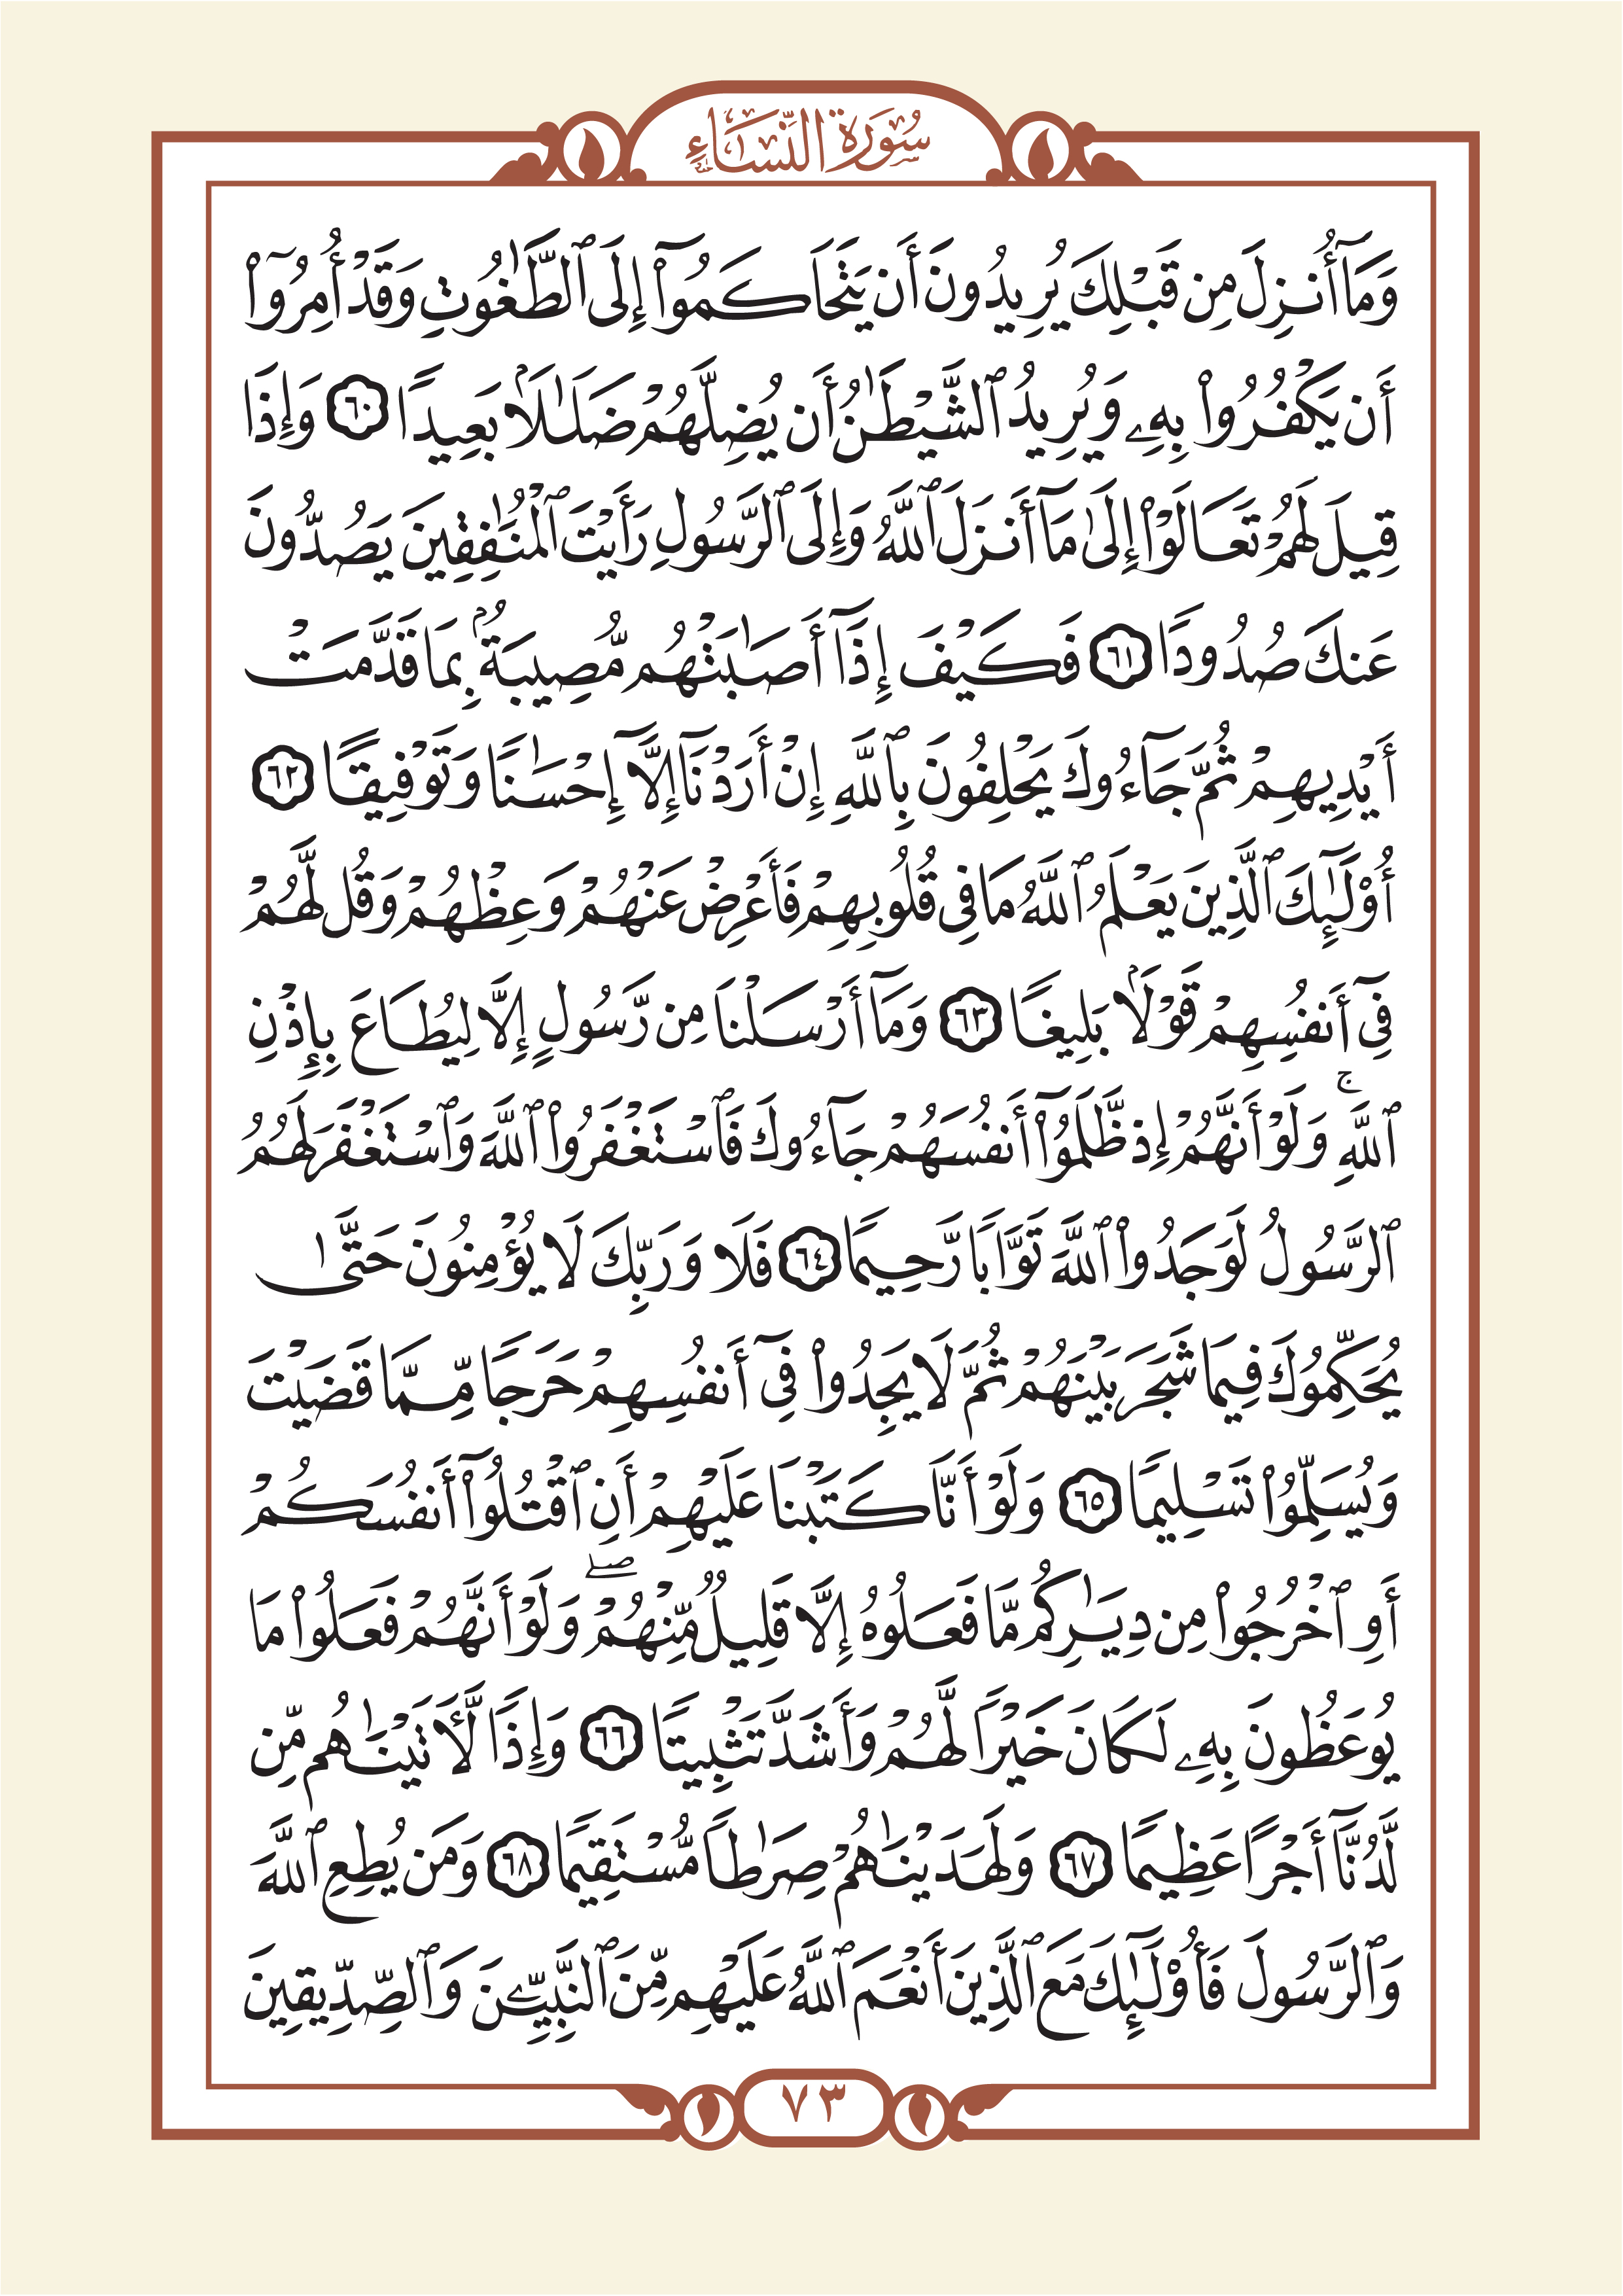 سُورَةُ النِّسَاءِ
وَمَآ أُنزِلَ مِن قَبْلِكَ يُرِيدُونَ أَن يَتَحَاكَمُوٓا۟ إِلَى ٱلطَّٰغُوتِ وَقَدْ أُمِرُوٓا۟
أَن يَكْفُرُوا۟ بِهِۦ وَيُرِيدُ ٱلشَّيْطَٰنُ أَن يُضِلَّهُمْ ضَلَٰلَۢا بَعِيدًا ٦٠ وَإِذَا
قِيلَ لَهُمْ تَعَالَوْا۟ إِلَىٰ مَآ أَنزَلَ ٱللَّهُ وَإِلَى ٱلرَّسُولِ رَأَيْتَ ٱلْمُنَٰفِقِينَ يَصُدُّونَ
عَنكَ صُدُودًا ٦١ فَكَيْفَ إِذَآ أَصَٰبَتْهُم مُّصِيبَةٌۢ بِمَا قَدَّمَتْ
أَيْدِيهِمْ ثُمَّ جَآءُوكَ يَحْلِفُونَ بِٱللَّهِ إِنْ أَرَدْنَآ إِلَّآ إِحْسَٰنًا وَتَوْفِيقًا ٦٢
أُو۟لَٰٓئِكَ ٱلَّذِينَ يَعْلَمُ ٱللَّهُ مَا فِى قُلُوبِهِمْ فَأَعْرِضْ عَنْهُمْ وَعِظْهُمْ وَقُل لَّهُمْ
فِىٓ أَنفُسِهِمْ قَوْلَۢا بَلِيغًا ٦٣ وَمَآ أَرْسَلْنَا مِن رَّسُولٍ إِلَّا لِيُطَاعَ بِإِذْنِ
ٱللَّهِ ۚ وَلَوْ أَنَّهُمْ إِذ ظَّلَمُوٓا۟ أَنفُسَهُمْ جَآءُوكَ فَٱسْتَغْفَرُوا۟ ٱللَّهَ وَٱسْتَغْفَرَ لَهُمُ
ٱلرَّسُولُ لَوَجَدُوا۟ ٱللَّهَ تَوَّابًا رَّحِيمًا ٦٤ فَلَا وَرَبِّكَ لَا يُؤْمِنُونَ حَتَّىٰ
يُحَكِّمُوكَ فِيمَا شَجَرَ بَيْنَهُمْ ثُمَّ لَا يَجِدُوا۟ فِىٓ أَنفُسِهِمْ حَرَجًا مِّمَّا قَضَيْتَ
وَيُسَلِّمُوا۟ تَسْلِيمًا ٦٥ وَلَوْ أَنَّا كَتَبْنَا عَلَيْهِمْ أَنِ ٱقْتُلُوٓا۟ أَنفُسَكُمْ
أَوِ ٱخْرُجُوا۟ مِن دِيَٰرِكُم مَّا فَعَلُوهُ إِلَّا قَلِيلٌ مِّنْهُمْ ۖ وَلَوْ أَنَّهُمْ فَعَلُوا۟ مَا
يُوعَظُونَ بِهِۦ لَكَانَ خَيْرًا لَّهُمْ وَأَشَدَّ تَثْبِيتًا ٦٦ وَإِذًا لَّءَاتَيْنَٰهُم مِّن
لَّدُنَّآ أَجْرًا عَظِيمًا ٦٧ وَلَهَدَيْنَٰهُمْ صِرَٰطًا مُّسْتَقِيمًا ٦٨ وَمَن يُطِعِ ٱللَّهَ
وَٱلرَّسُولَ فَأُو۟لَٰٓئِكَ مَعَ ٱلَّذِينَ أَنْعَمَ ٱللَّهُ عَلَيْهِم مِّنَ ٱلنَّبِيِّـۧنَ وَٱلصِّدِّيقِينَ
٧٣